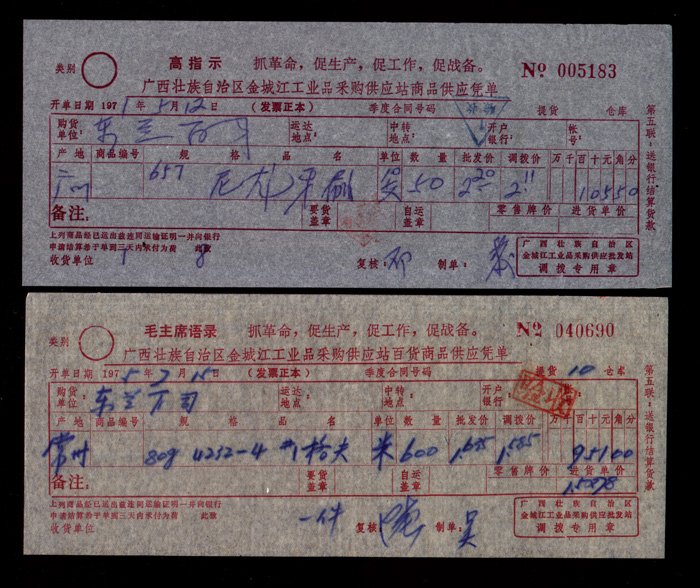 类别
高指示 抓革命，促生产，促工作，促战备。
№ 005183
广西壮族自治区金城江工业品采购供应站商品供应凭单
开单日期 1971年5月12日 （发票正本） 季度合同号码 提货 仓库
购货单位： 东兰百司 运达地点： 中转地点： 开户银行： 帐号：
产地 商品编号 规格品名 单位 数量 批发价 调拨价 万千百十元角分
广州 657 尼龙牙刷 50 2.20 2.11 105.50
备注： 要货盖章 自运盖章 零售牌价 进货单价
上列商品经已运出兹连同运输证明一并向银行
申请结算希于单到三天内承付为荷 此致
收货单位
复核： 邓 制单：
广西壮族自治区
金城江工业品采购供应批发站
调拨专用章
第五联：送银行结算货款
类别
毛主席语录 抓革命，促生产，促工作，促战备。
№ 040690
广西壮族自治区金城江工业品采购供应站百货商品供应凭单
开单日期 1975年7月15日 （发票正本） 季度合同号码 提货 10 仓库
购货单位： 东兰百司 运达地点： 中转地点： 开户银行： 帐号：
产地 商品编号 规格品名 单位 数量 批发价 调拨价 万千百十元角分
常州 809 4232-4 格夫 米 600 1.635 1.585 951.00
备注： 要货盖章 自运盖章 零售牌价 进货单价
1.5078
上列商品经已运出兹连同运输证明一并向银行
申请结算希于单到三天内承付为荷 此致
收货单位
一件 复核： 制单： 吴
广西壮族自治区
金城江工业品采购供应批发站
调拨专用章
第五联：送银行结算货款